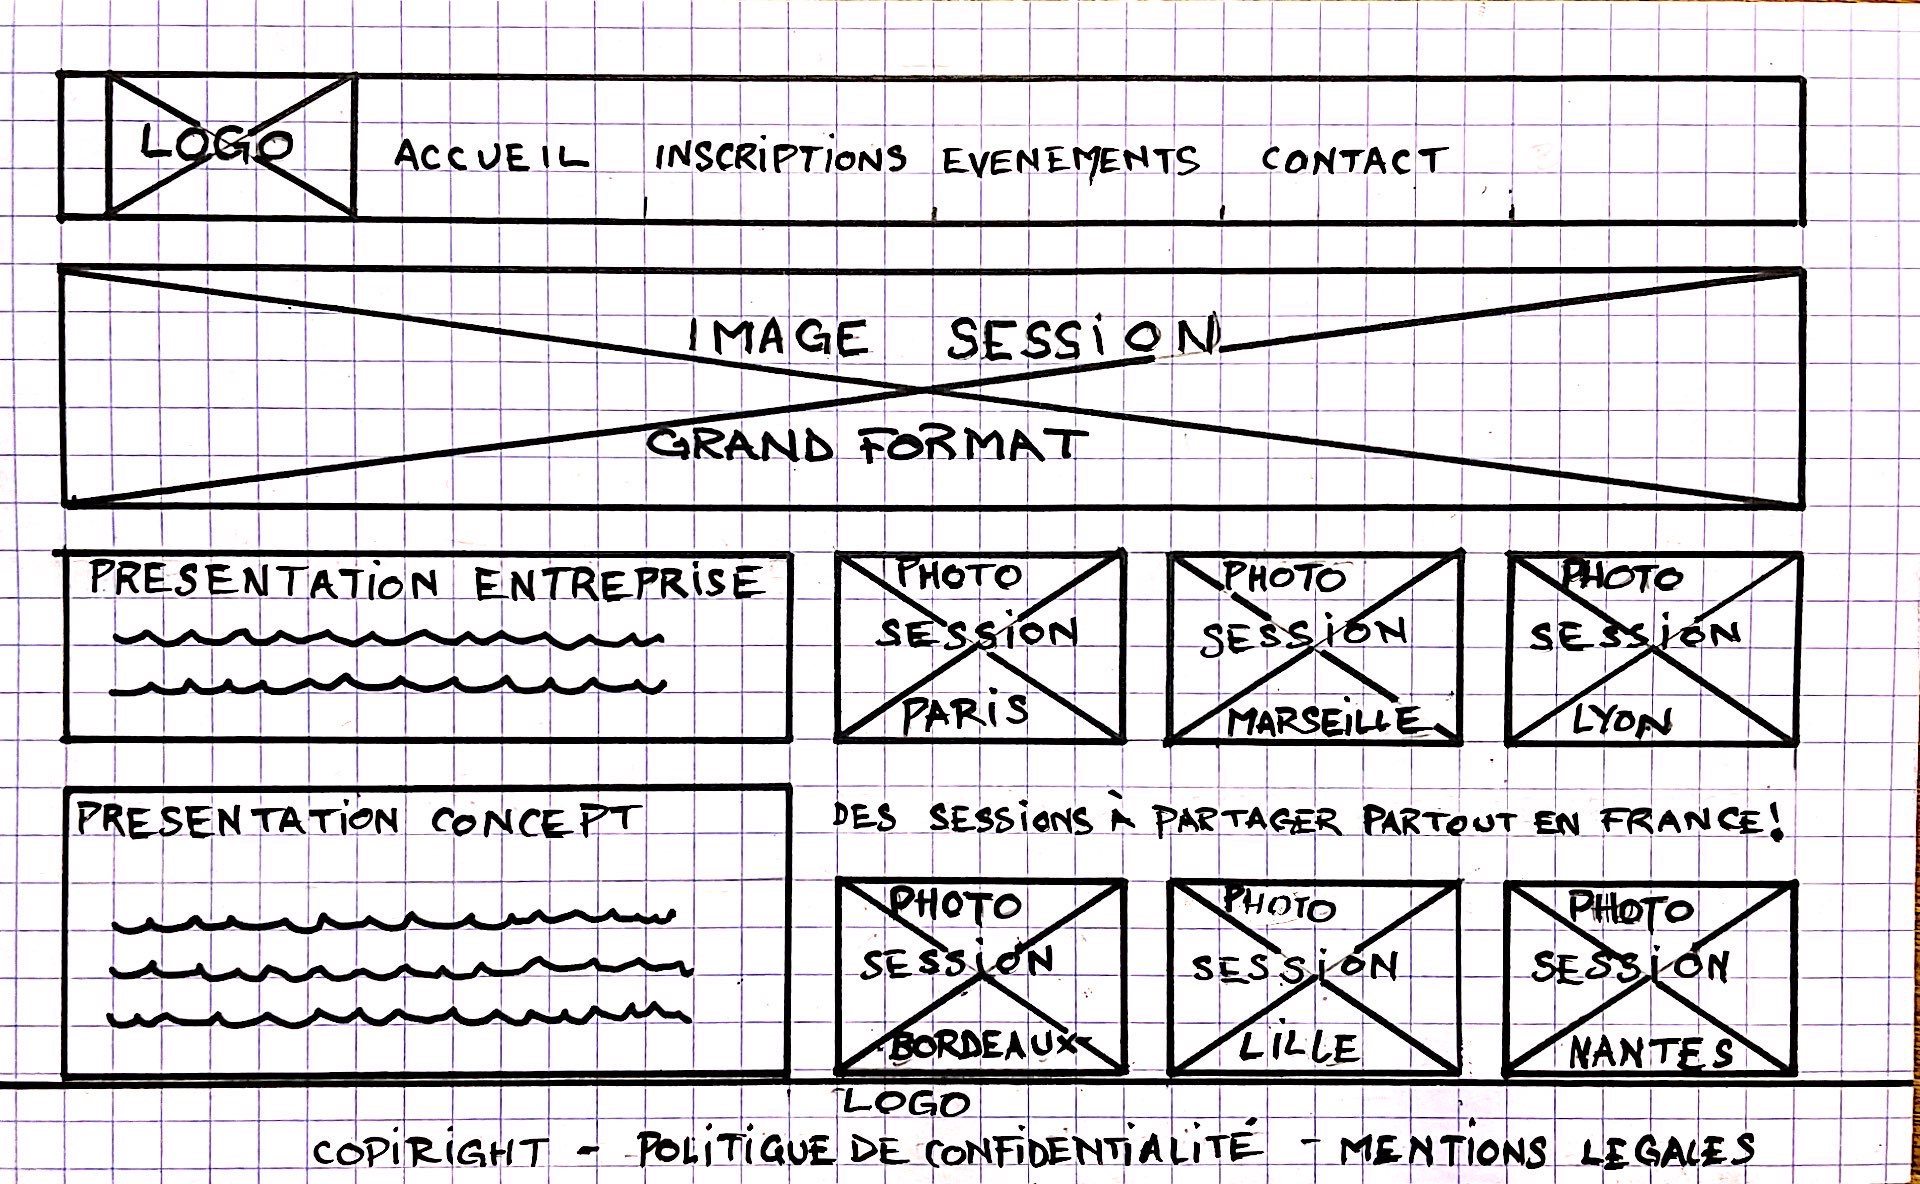 LOGO
ACCUEIL INSCRIPTIONS EVENEMENTS CONTACT
IMAGE SESSION
GRAND FORMAT
PRESENTATION ENTREPRISE
PHOTO
SESSION
PARIS
PHOTO
SESSION
MARSEILLE
PHOTO
SESSION
LYON
PRESENTATION CONCEPT
DES SESSIONS À PARTAGER PARTOUT EN FRANCE!
PHOTO
SESSION
BORDEAUX
PHOTO
SESSION
LILLE
PHOTO
SESSION
NANTES
LOGO
COPIRIGHT - POLITIQUE DE CONFIDENTIALITÉ - MENTIONS LEGALES